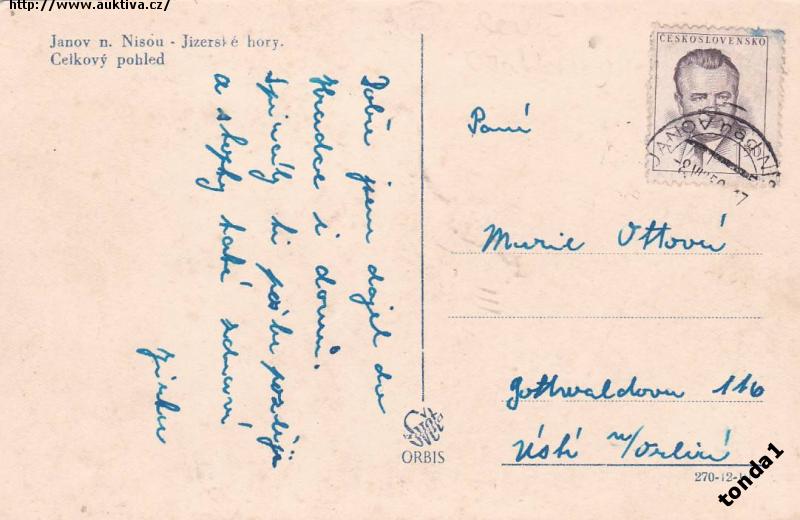 http://www.auktiva.cz/
Janov n. Nisou - Jizerské hory.
Celkový pohled
Dobře jsem dojel do
Hradce i domů.
ti posílá
a strýk také zdraví
Jirka
ČESKOSLOVENSKO
JANOV nad NIS
Paní
Marie Ottová
Gottwaldova 116
Ústí n/Orlicí
Svět
ORBIS
270-12-1
tonda1